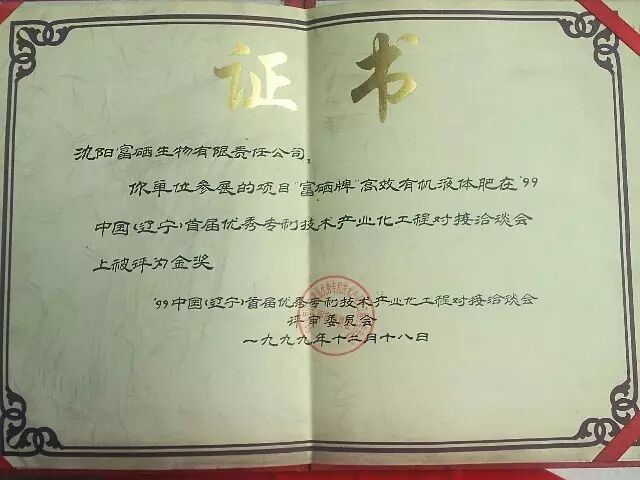 证书
沈阳富硒生物有限责任公司,
你单位参展的项目"富硒牌"高效有机液体肥在'99
中国(辽宁)首届优秀专利技术产业化工程对接洽谈会
上被评为金奖
'99中国(辽宁)首届优秀专利技术产业化工程对接洽谈会
评审委员会
一九九九年十二月十八日